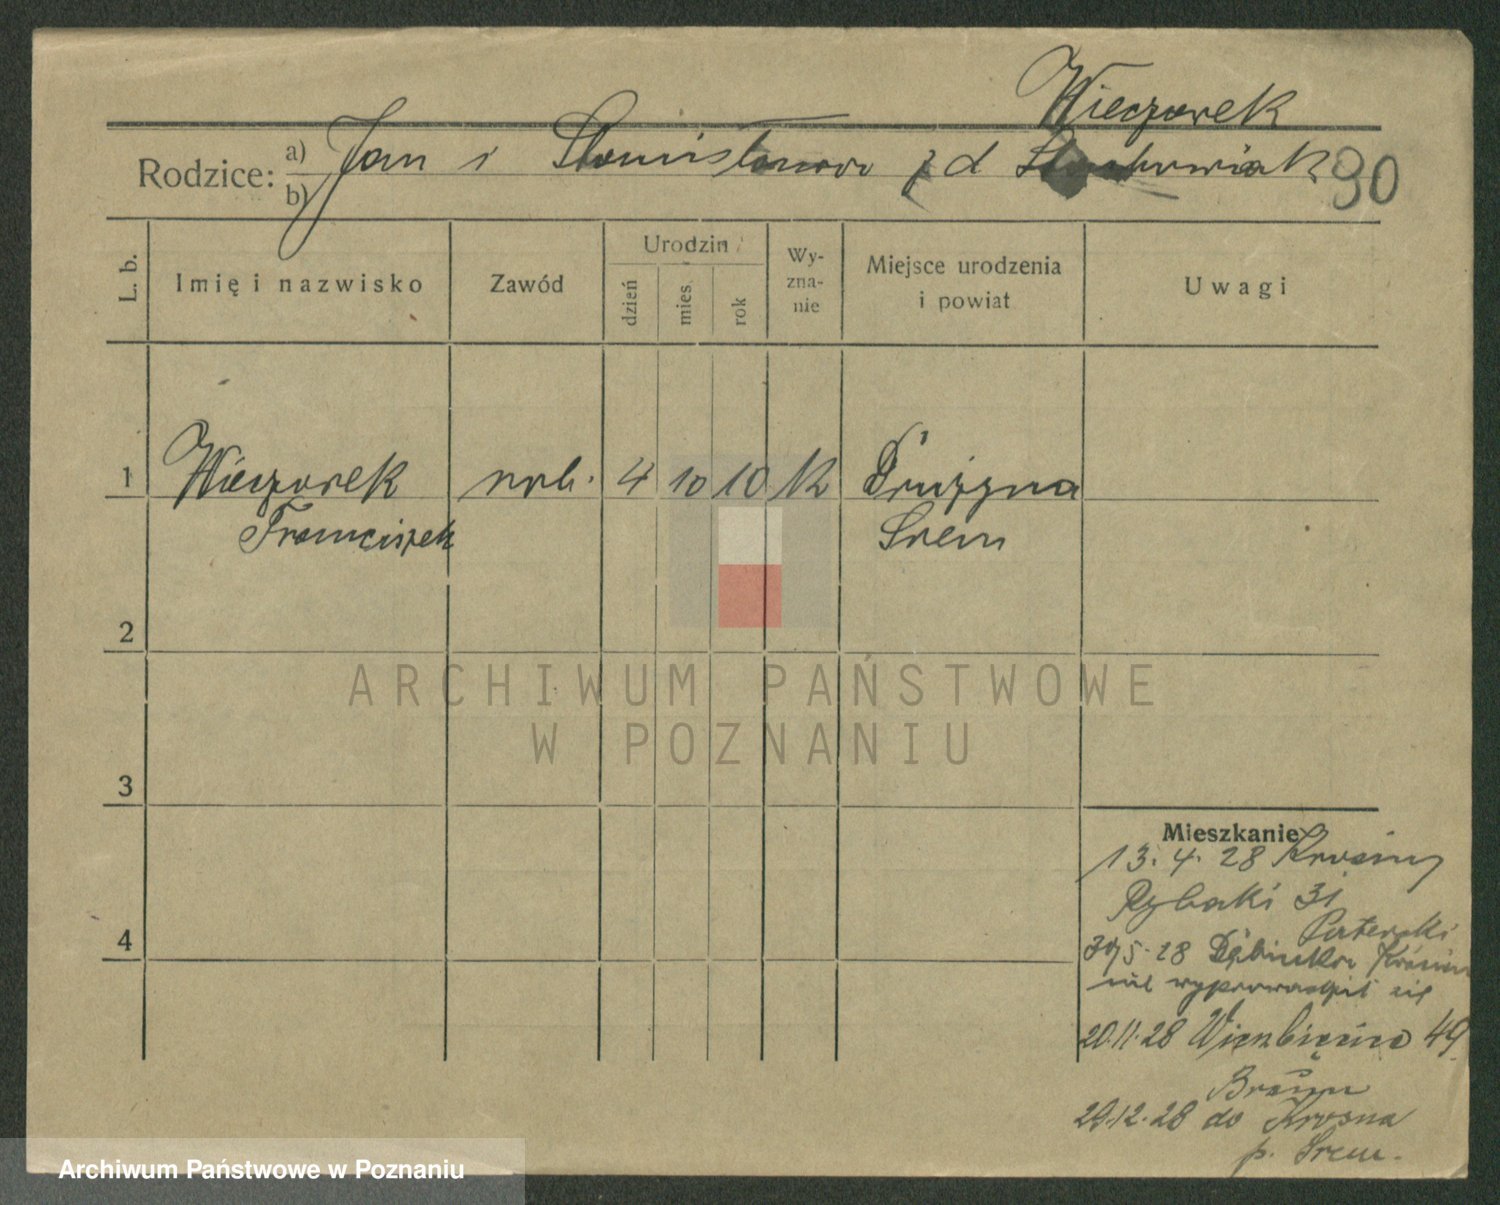 Wieczorek
Rodzice: a) Jan i Stanisława z d
b)
90
L. b.
Imię i nazwisko
Zawód
Urodzin
dzień
mies.
rok
Wy-
zna-
nie
Miejsce urodzenia
i powiat
Uwagi
1
Wieczorek
Franciszek
rob.
4
10
10
K
Drużyna
Śrem
2
3
4
Mieszkanie
13.4.28
Rybaki 31
5.28
nie wyprowadził się
20.11.28 Wierzbięcice 49
Braun
29.12.28 do Krosna
p. Śrem.
ARCHIWUM PAŃSTWOWE
W POZNANIU
Archiwum Państwowe w Poznaniu